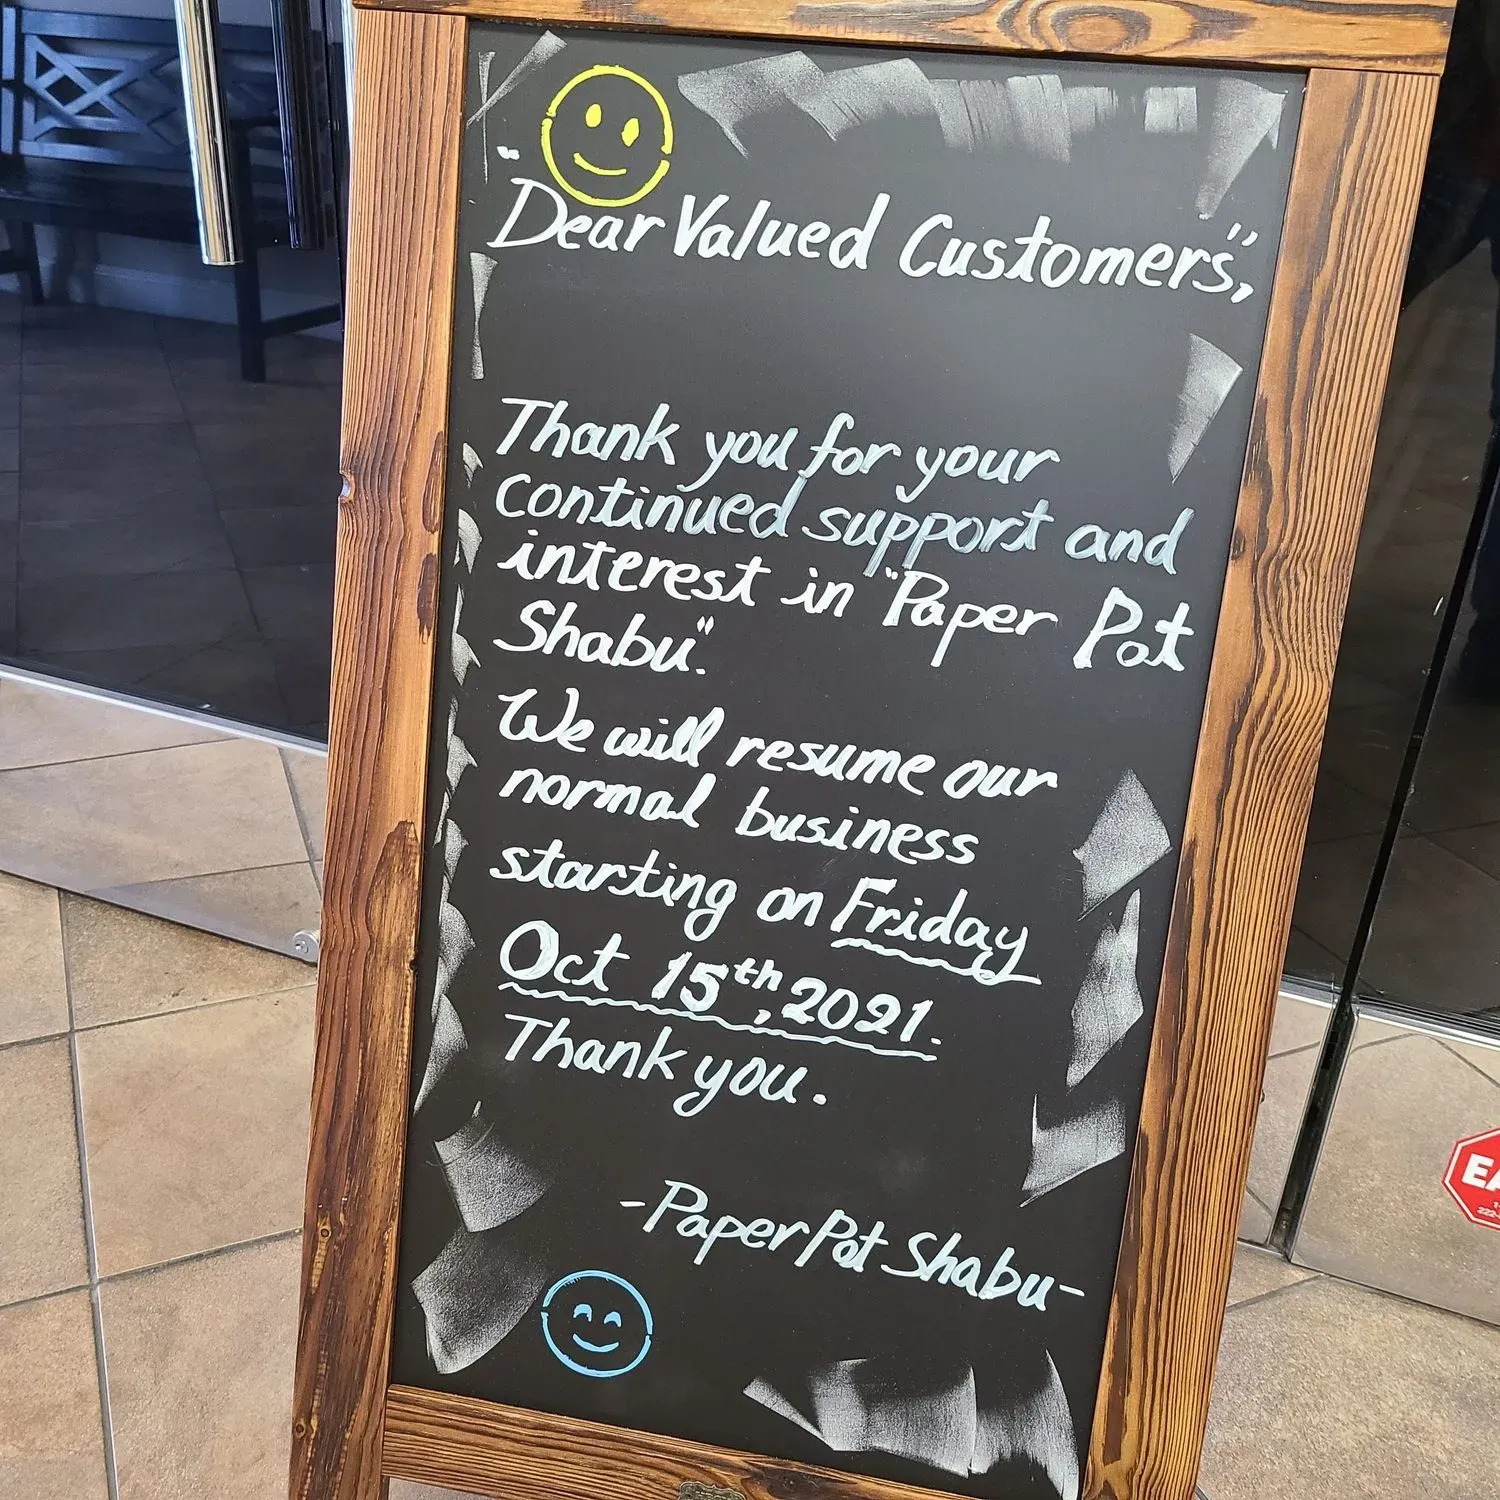 "Dear Valued Customers",
Thank you for your
continued support and
interest in "Paper Pot
Shabu".
We will resume our
normal business
starting on Friday
Oct 15th, 2021.
Thank you.
-Paper Pot Shabu-